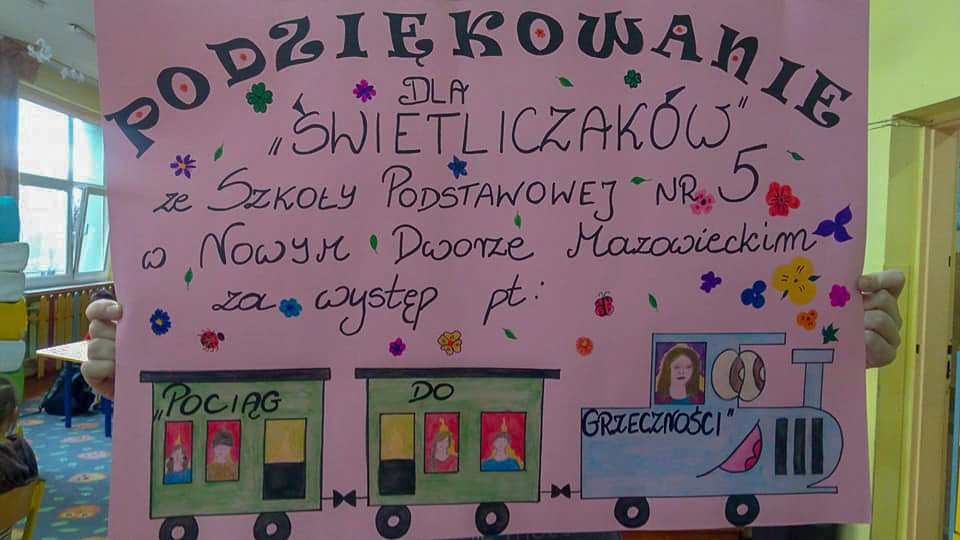 PODZIĘKOWANIE
DLA
„ŚWIETLICZAKÓW"
ze SZKOŁY PODSTAWOWEJ NR 5
w Nowym Dworze Mazowieckim
za występ pt:
„POCIĄG DO GRZECZNOŚCI"